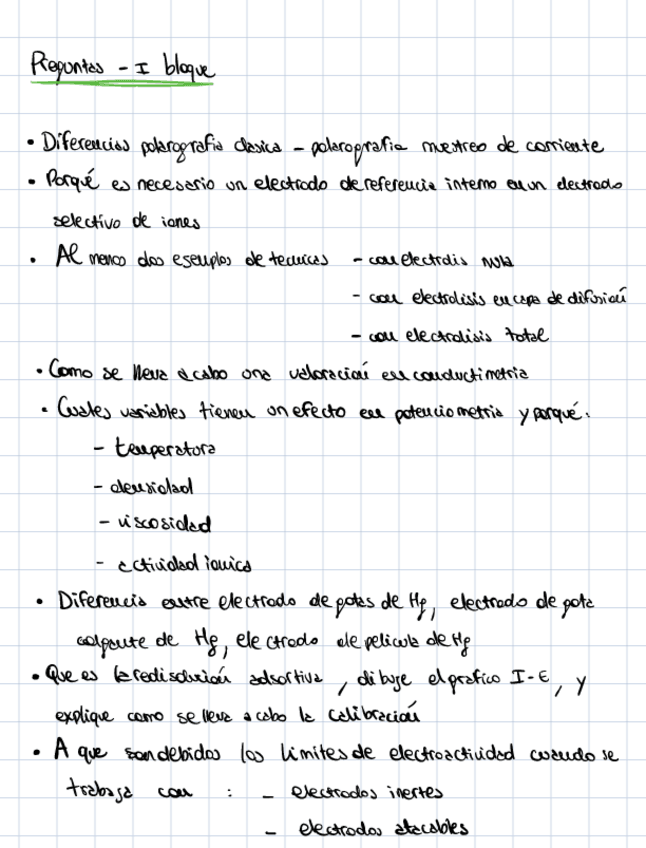 Preguntas - I bloque
• Diferencias polarografia clasica - polarografia muestreo de corriente
• Porqué es necesario un electrodo de referencia interno en un electrodo
selectivo de iones
• Al menos dos esemplos de tecnicas - con electrolis nula
- con electrolisis en capa de difusión
- con electrolisis total
• Como se lleva a cabo una valoración en conductimetria
• Cuales variables tienen un efecto en potenciometria y porqué:
- temperatura
- densidad
- viscosidad
- actividad ionica
• Diferencia entre electrodo de gotas de Hg, electrodo de gota
colgante de Hg, electrodo de pelicula de Hg
• Que es la redisolución adsortiva, dibuje el grafico I-E, y
explique como se lleva a cabo la calibración
• A que son debidos los limites de electroactividad cuando se
trabaja con : - electrodos inertes
- electrodos atacables